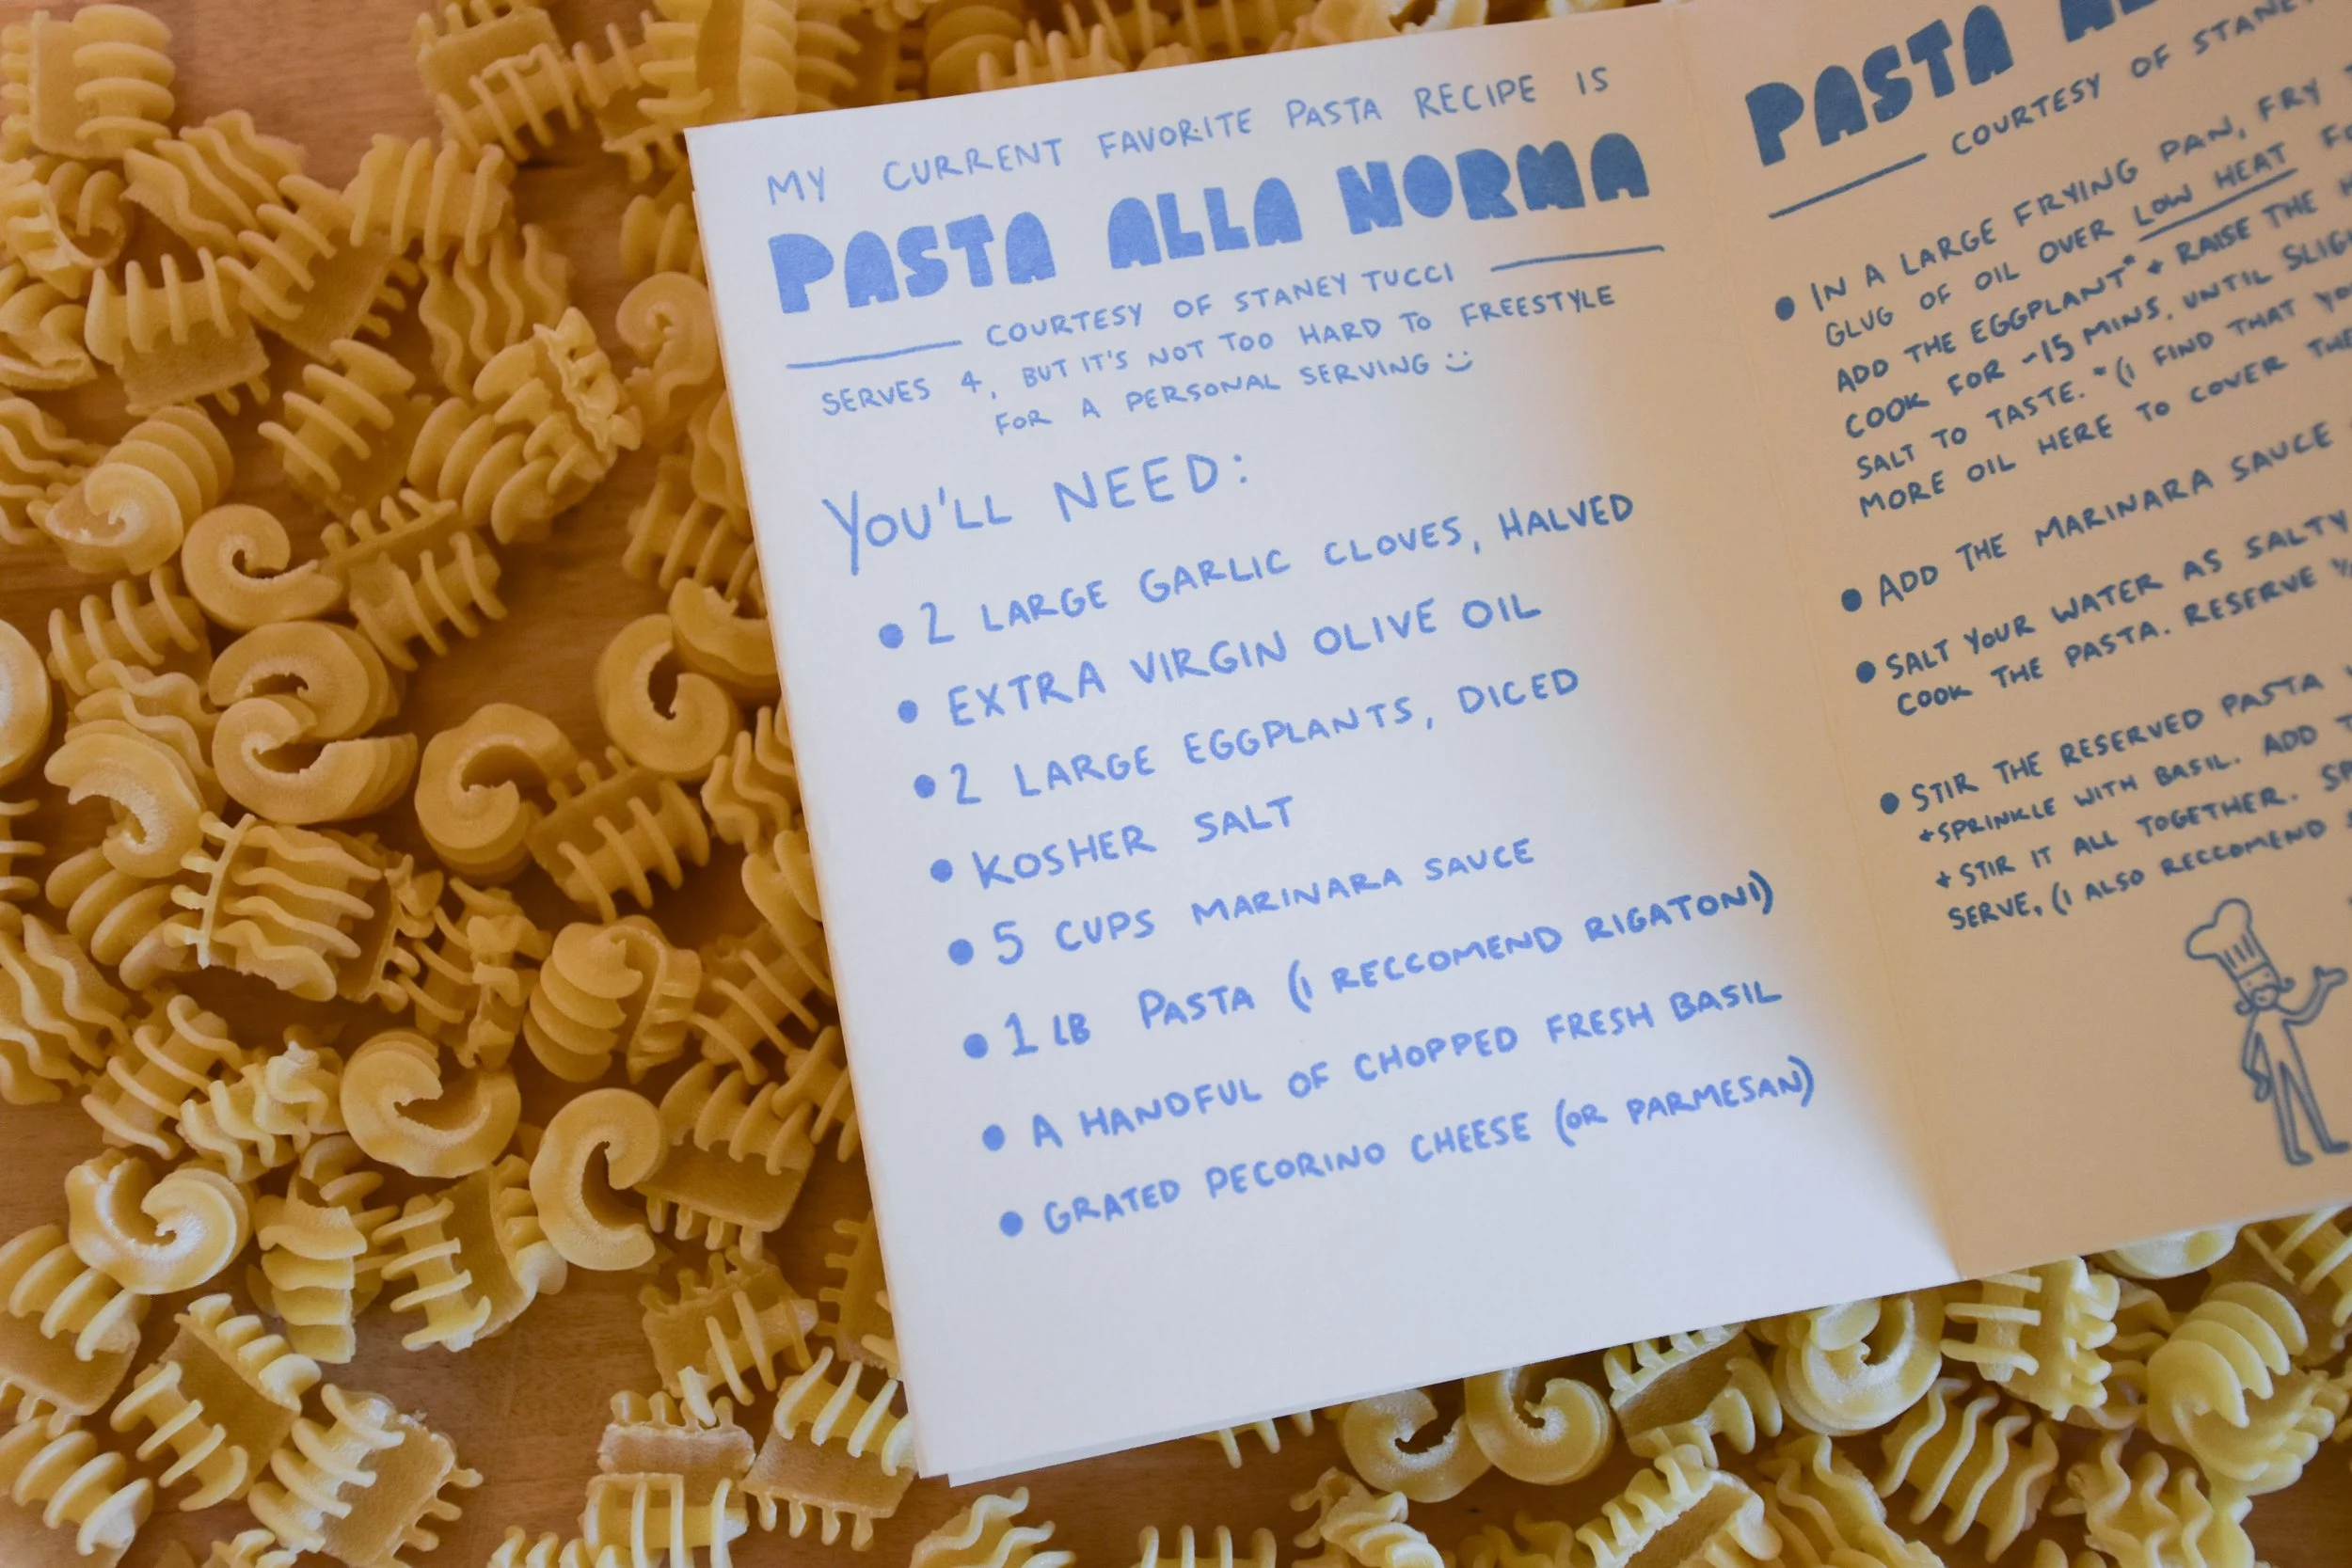 MY CURRENT FAVORITE PASTA RECIPE IS
PASTA ALLA NORMA
COURTESY OF STANEY TUCCI
SERVES 4, BUT IT'S NOT TOO HARD TO FREESTYLE
FOR A PERSONAL SERVING :)
YOU'LL NEED:
• 2 LARGE GARLIC CLOVES, HALVED
• EXTRA VIRGIN OLIVE OIL
• 2 LARGE EGGPLANTS, DICED
• KOSHER SALT
• 5 CUPS MARINARA SAUCE
• 1 LB PASTA (I RECCOMEND RIGATONI)
• A HANDFUL OF CHOPPED FRESH BASIL
• GRATED PECORINO CHEESE (OR PARMESAN)
PASTA
COURTESY OF
• IN A LARGE FRYING PAN, FRY
GLUG OF OIL OVER LOW HEAT
ADD THE EGGPLANT* + RAISE THE
COOK FOR ~15 MINS, UNTIL
SALT TO TASTE. *(I FIND THAT
MORE OIL HERE TO COVER
• ADD THE MARINARA SAUCE
• SALT YOUR WATER AS SALTY
COOK THE PASTA. RESERVE
• STIR THE RESERVED PASTA
+ SPRINKLE WITH BASIL. ADD
+ STIR IT ALL TOGETHER.
SERVE, (I ALSO RECCOMEND